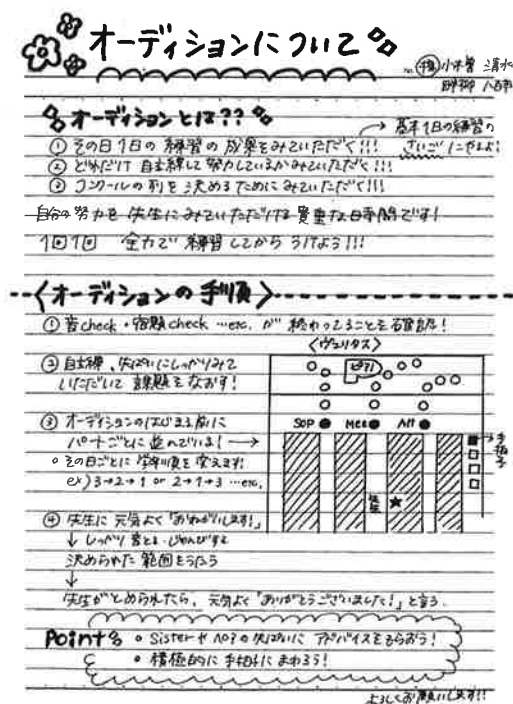 オーディションについて
オーディションとは??
→ 基本1日の練習の
さいごにやるよ!
① その日1日の練習の成果をみていただく!!!
② どれだけ自主練して努力しているかみていただく!!!
③ コンクールの列を決めるためにみていただく!!!
自分の努力を先生にみていただける貴重な時間です!
1回1回 全力で練習してからうけよう!!!
<オーディションの手順>
① 音check・宿題check …etc. が終わってることを確認!
<ヴェリタス>
② 自主練、先ぱいにしっかりみて
いただいて課題をなおす!
ピアノ
③ オーディションのはじまる前に
パートごとに並んでいよ! →
SOP Mez Alt
→手拍子
。その日ごとに学年順を変えます!
ex) 3→2→1 or 2→1→3 …etc.
先生 ★
④ 先生に元気よく「おねがいします!」
↓ しっかり音とる・じゅんびする
決められた範囲をうたう
↓
先生がとめられたら、元気よく「ありがとうございました!」と言う。
Point 。Sisterや の先ぱいにアドバイスをもらおう!
。積極的に手拍子にまわろう!
よろしくお願いします!!